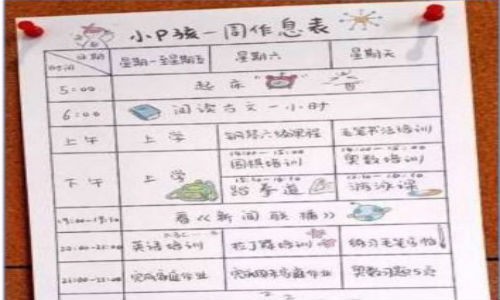 小P孩一周作息表
日期 星期一至星期五 星期六 星期天
时间
5:00 起床
6:00 阅读古文一小时
上午 上学 钢琴六级课程 毛笔书法培训
下午 上学 14:00-15:00 围棋培训 14:00-15:00 奥数培训
15:30-16:30 跆拳道 游泳课
19:00-19:30 看《新闻联播》
ABC
20:00-21:00 英语培训 拉丁舞培训 练习毛笔字帖
21:00-22:00 完成家庭作业 完成周末家庭作业 奥数习题5道